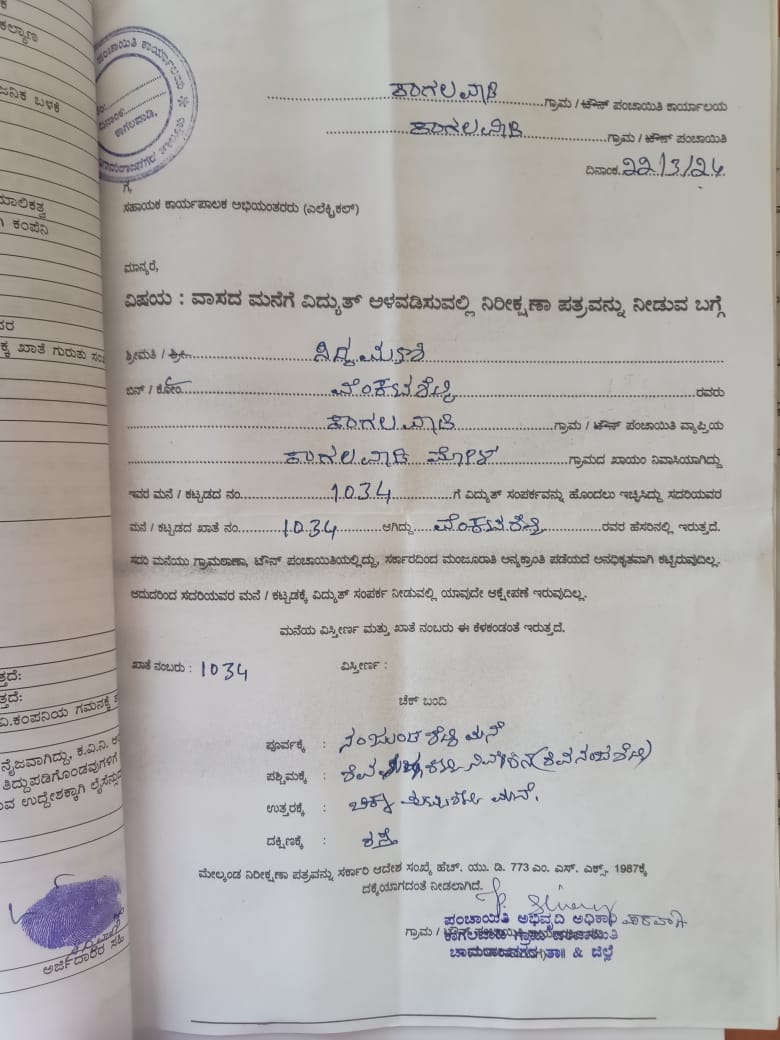 ಕಲ್ಯಾಣ
ಜನಿಕ ಬಳಕೆ
ಮಾಲಿಕತ್ವ
ಕಂಪೆನಿ
ಖಾತೆ ಗುರುತು ಸಂ
ತ್ತದೆ:
ತ್ತದೆ:
ವಿ.ಕಂಪನಿಯ ಗಮನಕ್ಕೆ
ನೈಜವಾಗಿದ್ದು, ಕ.ವಿ.ನಿ.
ತಿದ್ದುಪಡಿಗೊಂಡವುಗಳಿಗೆ
ಉದ್ದೇಶಕ್ಕಾಗಿ
ಅರ್ಜಿದಾರರ ಸಹಿ
ಪಂಚಾಯಿತಿ ಕಾರ್ಯಾಲಯ
ದಿನಾಂಕ:
ಕಾಗಲವಾಡಿ,
ಕಾಗಲವಾಡಿ ಗ್ರಾಮ / ಟೌನ್ ಪಂಚಾಯಿತಿ ಕಾರ್ಯಾಲಯ
ಕಾಗಲವಾಡಿ ಗ್ರಾಮ / ಟೌನ್ ಪಂಚಾಯಿತಿ
ದಿನಾಂಕ. 22/3/24
ಗೆ,
ಸಹಾಯಕ ಕಾರ್ಯಪಾಲಕ ಅಭಿಯಂತರರು (ಎಲೆಕ್ಟ್ರಿಕಲ್)
ಮಾನ್ಯರೆ,
ವಿಷಯ : ವಾಸದ ಮನೆಗೆ ವಿದ್ಯುತ್ ಅಳವಡಿಸುವಲ್ಲಿ ನಿರೀಕ್ಷಣಾ ಪತ್ರವನ್ನು ನೀಡುವ ಬಗ್ಗೆ
ಶ್ರೀಮತಿ / ಶ್ರೀ
ಬಿನ್ / ಕೋಂ ವೆಂಕಟಶೆಟ್ಟಿ ರವರು
ಕಾಗಲವಾಡಿ ಗ್ರಾಮ / ಟೌನ್ ಪಂಚಾಯಿತಿ ವ್ಯಾಪ್ತಿಯ
ಕಾಗಲವಾಡಿ ಮೋಳೆ ಗ್ರಾಮದ ಖಾಯಂ ನಿವಾಸಿಯಾಗಿದ್ದು
ಇವರ ಮನೆ / ಕಟ್ಟಡದ ನಂ. 1034 ಗೆ ವಿದ್ಯುತ್ ಸಂಪರ್ಕವನ್ನು ಹೊಂದಲು ಇಚ್ಛಿಸಿದ್ದು ಸದರಿಯವರ
ಮನೆ / ಕಟ್ಟಡದ ಖಾತೆ ನಂ. 1034 ಆಗಿದ್ದು ವೆಂಕಟಶೆಟ್ಟಿ ರವರ ಹೆಸರಿನಲ್ಲಿ ಇರುತ್ತದೆ.
ಸದರಿ ಮನೆಯು ಗ್ರಾಮಠಾಣಾ, ಟೌನ್ ಪಂಚಾಯಿತಿಯಲ್ಲಿದ್ದು, ಸರ್ಕಾರದಿಂದ ಮಂಜೂರಾತಿ ಅನ್ಯಕ್ರಾಂತಿ ಪಡೆಯದೆ ಅನಧಿಕೃತವಾಗಿ ಕಟ್ಟಿರುವುದಿಲ್ಲ.
ಆದುದರಿಂದ ಸದರಿಯವರ ಮನೆ / ಕಟ್ಟಡಕ್ಕೆ ವಿದ್ಯುತ್ ಸಂಪರ್ಕ ನೀಡುವಲ್ಲಿ ಯಾವುದೇ ಆಕ್ಷೇಪಣೆ ಇರುವುದಿಲ್ಲ.
ಮನೆಯ ವಿಸ್ತೀರ್ಣ ಮತ್ತು ಖಾತೆ ನಂಬರು ಈ ಕೆಳಕಂಡಂತೆ ಇರುತ್ತದೆ.
ಖಾತೆ ನಂಬರು : 1034 ವಿಸ್ತೀರ್ಣ :
ಚೆಕ್ ಬಂದಿ
ಪೂರ್ವಕ್ಕೆ : ನಂಜುಂಡಶೆಟ್ಟಿ ಮನೆ
ಪಶ್ಚಿಮಕ್ಕೆ :
ಉತ್ತರಕ್ಕೆ : ಚಿಕ್ಕ ಮನೆ.
ದಕ್ಷಿಣಕ್ಕೆ : ರಸ್ತೆ
ಮೇಲ್ಕಂಡ ನಿರೀಕ್ಷಣಾ ಪತ್ರವನ್ನು ಸರ್ಕಾರಿ ಆದೇಶ ಸಂಖ್ಯೆ ಹೆಚ್. ಯು. ಡಿ. 773 ಎಂ. ಎಸ್. ಎಕ್ಸ್. 1987ಕ್ಕೆ
ದಕ್ಕೆಯಾಗದಂತೆ ನೀಡಲಾಗಿದೆ.
ಪಂಚಾಯಿತಿ ಅಭಿವೃದ್ಧಿ ಅಧಿಕಾರಿ
ಗ್ರಾಮ / ಕಾಗಲವಾಡಿ ಗ್ರಾಮ ಪಂಚಾಯಿತಿ
ಚಾಮರಾಜನಗರ ತಾ॥ & ಜಿಲ್ಲೆ